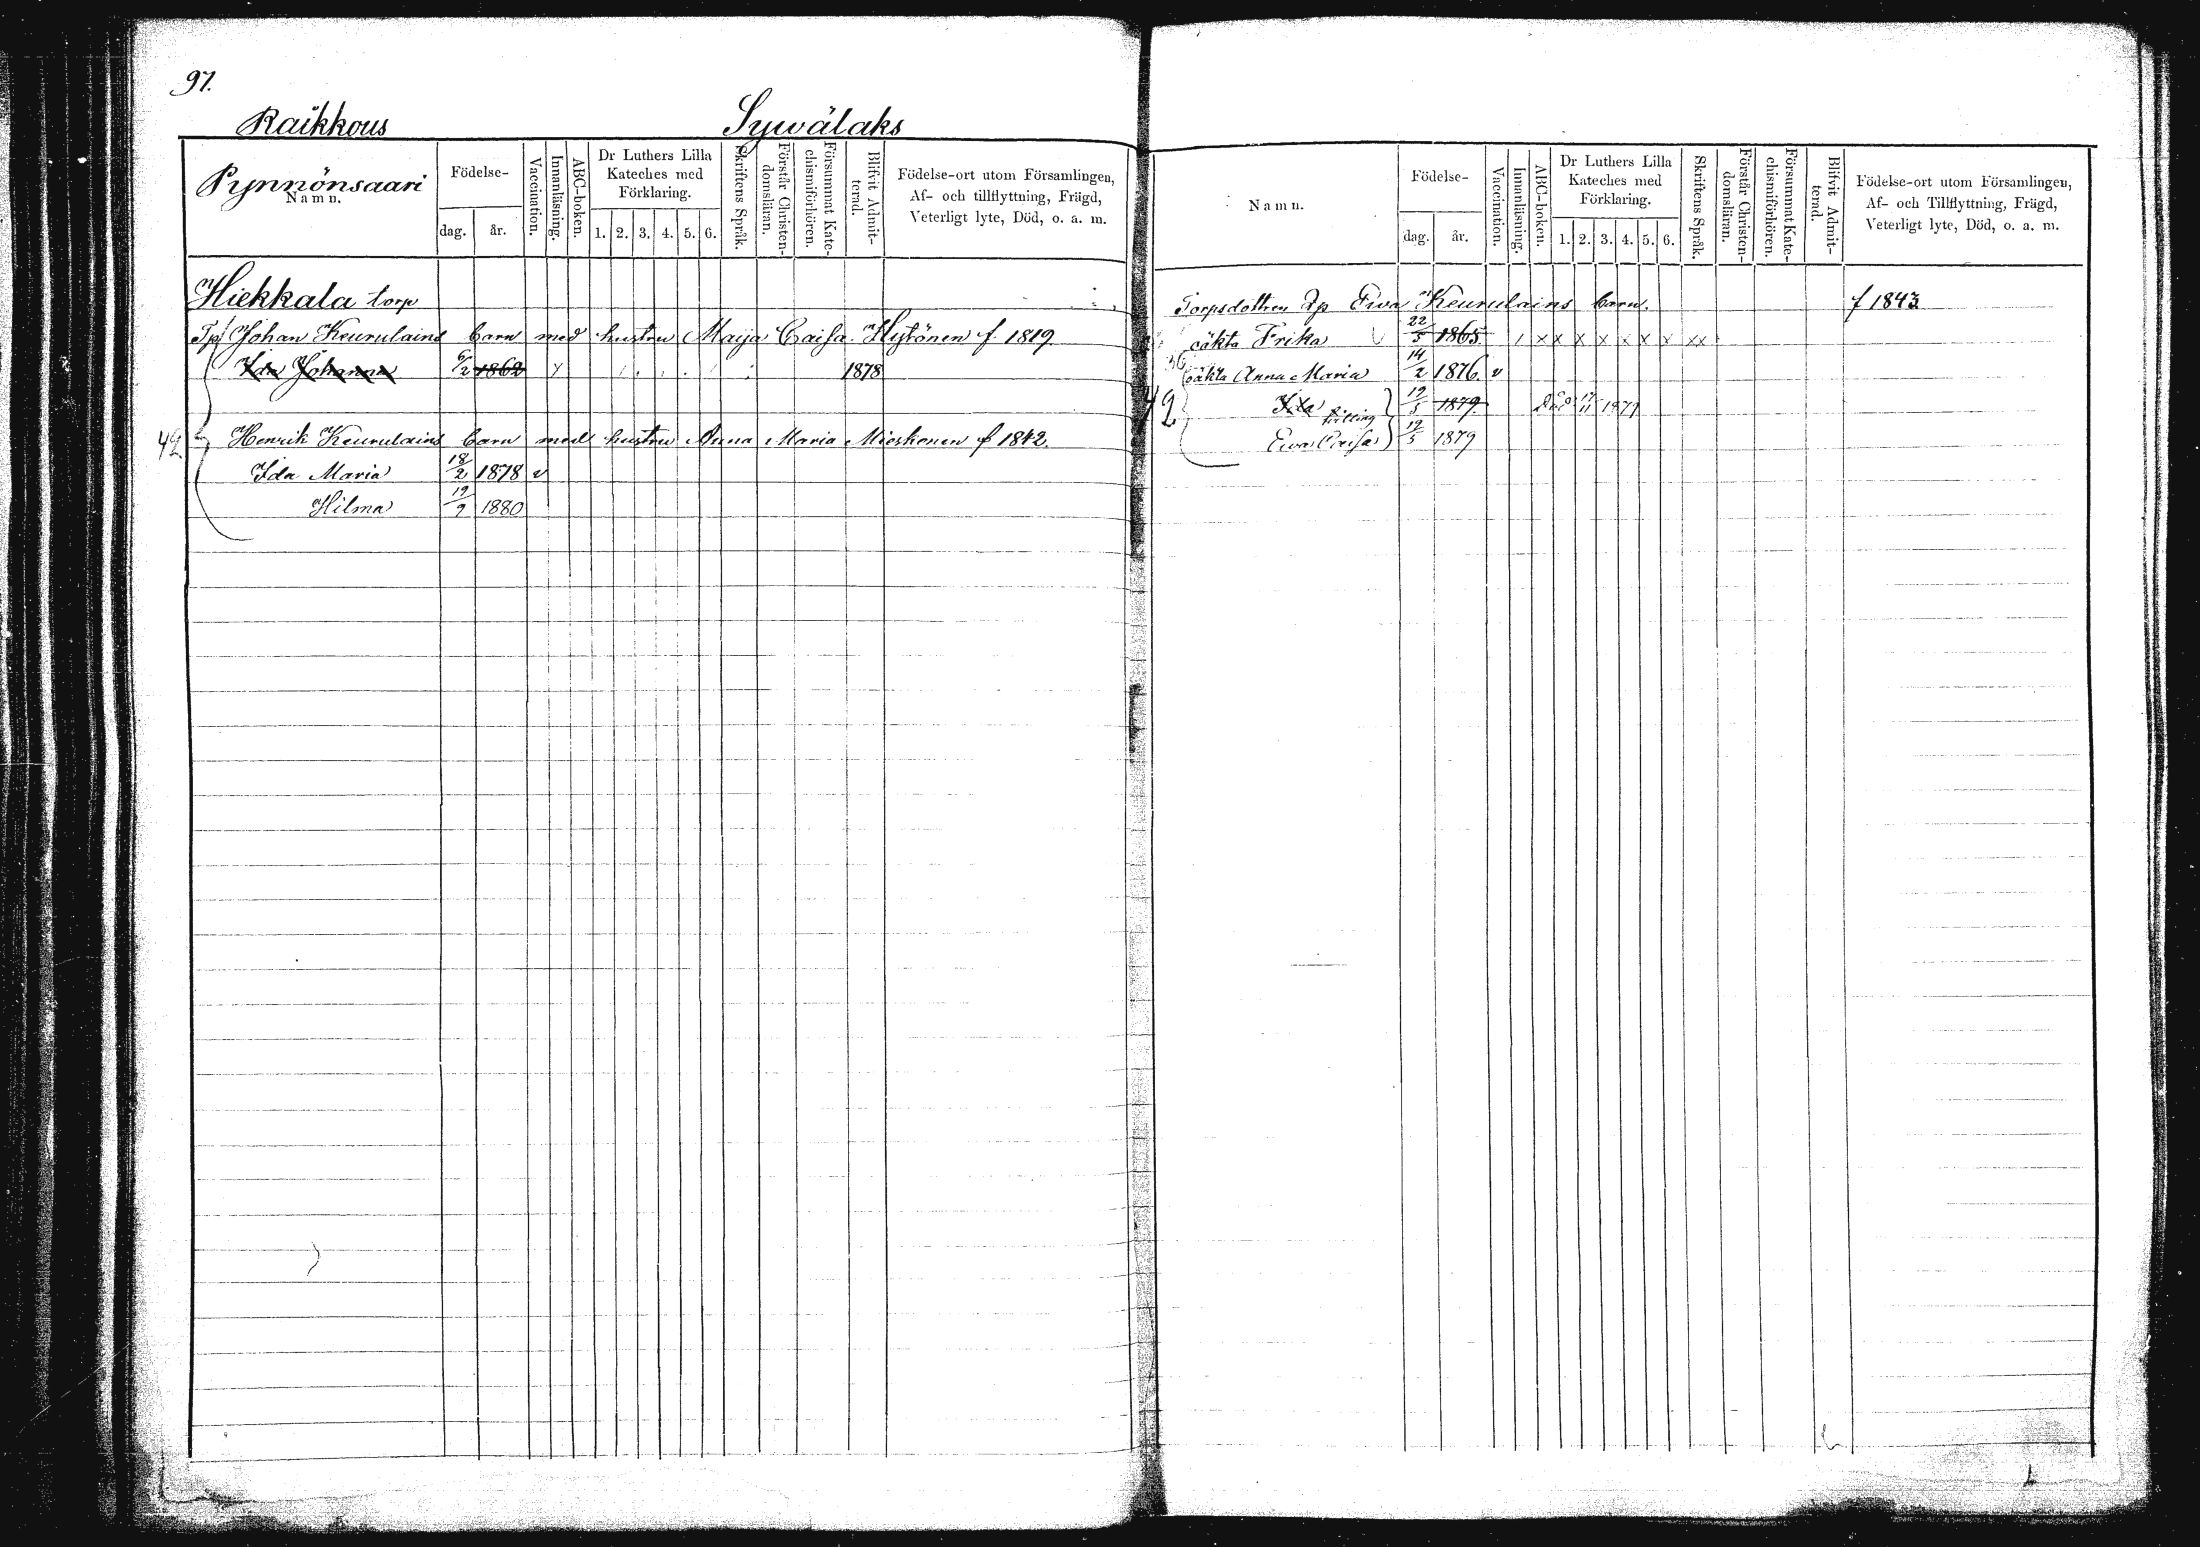 97.
Raikkous Sywälaks
Pynnönsaari
Namn.
Födelse-
dag. år.
Vaccination.
Innanläsning.
ABC-boken.
Dr Luthers Lilla
Kateches med
Förklaring.
1. 2. 3. 4. 5. 6.
Skriftens Språk.
Förstår Christen-
domsläran.
Försummat Kate-
chismiförhören.
Blifvit Admit-
terad.
Födelse-ort utom Församlingen,
Af- och tillflyttning, Frägd,
Veterligt lyte, Död, o. a. m.
Hiekkala torp
Tp Johan Keurulains barn med hustru Maija Caisa Hytönen f 1819
Ida Johanna 6/2 1862 1878
42 Henrik Keurulains barn med hustru Anna Maria Mieskonen f 1842.
Ida Maria 18/2 1878 v
Hilma 19/9 1880
Namn.
Födelse-
dag. år.
Vaccination.
Innanläsning.
ABC-boken.
Dr Luthers Lilla
Kateches med
Förklaring.
1. 2. 3. 4. 5. 6.
Skriftens Språk.
Förstår Christen-
domsläran.
Försummat Kate-
chismiförhören.
Blifvit Admit-
terad.
Födelse-ort utom Församlingen,
Af- och Tillflyttning, Frägd,
Veterligt lyte, Död, o. a. m.
Torpsdottren Ewa Keurulains barn. f 1843
oäkta Frika 22/5 1865 x x x x x x x xx
oäkta Anna Maria 14/2 1876. v
42 Ida 19/5 1879. Död 17/11 1879
tvilling
Ewa Caisa 19/5 1879